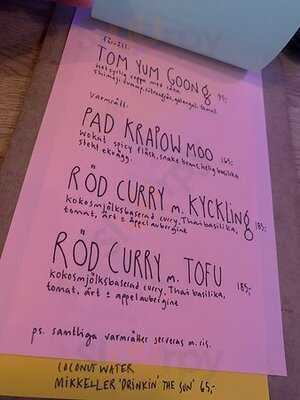 Förrätt:
TOM YUM GOONG 95:-
Het syrlig soppa med räka
shimeji, svamp, citrongräs, galangal, tomat
Varmrätt:
PAD KRAPOW MOO 165:-
Wokat spicy fläsk, snake beans, helig basilika
stekt ekoägg.
RÖD CURRY m. KYCKLING 185:-
kokosmjölksbaserad curry, Thai basilika,
tomat, ärt & äppelaubergine
RÖD CURRY m. TOFU 185:-
kokosmjölksbaserad curry, Thai basilika,
tomat, ärt & äppelaubergine
ps. samtliga varmrätter serveras m. ris.
COCONUT WATER
MIKKELLER 'DRINKIN' THE SUN' 65,-